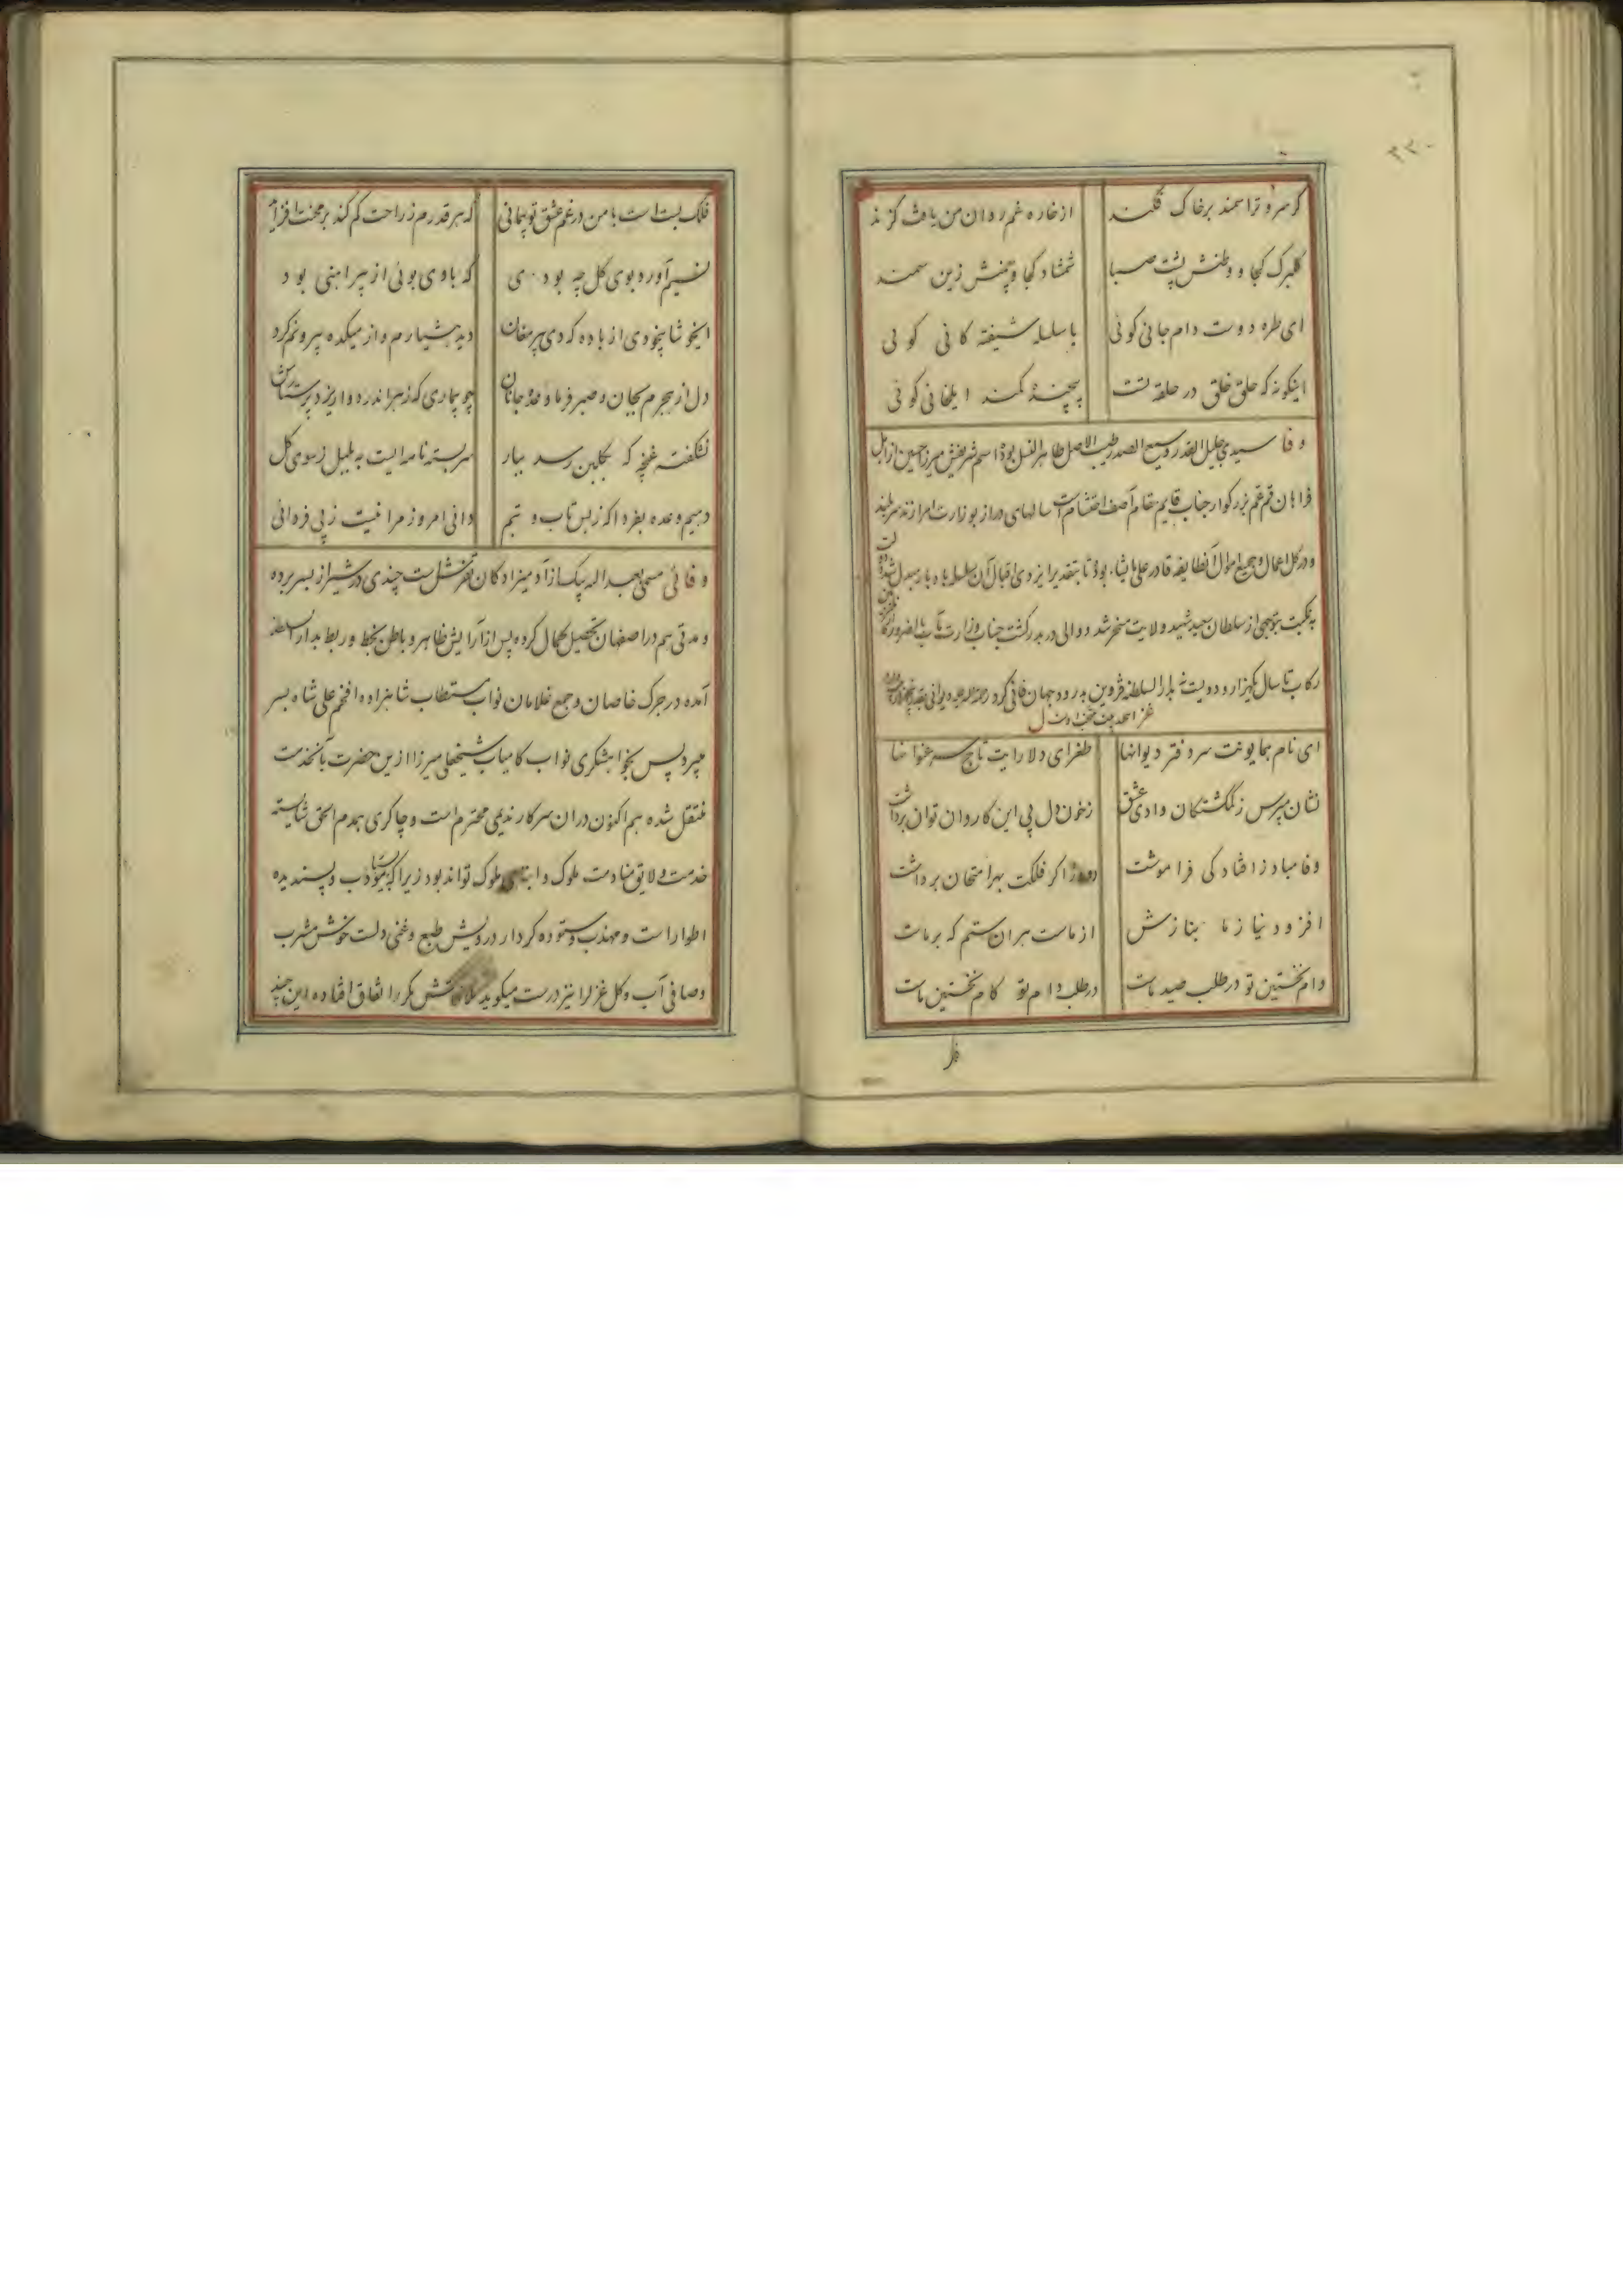 ۲۳۰
گر سرو ترا سمند برخاک فکند از خاره غم روان من یافت گزند
گلبرگ کجا و وطنش پشت صبا شمشاد کجا و چمنش زین سمند
ای طره دوست دام جانی گوئی با سلسله شیفته کانی گوئی
اینگونه که حلق خلق در حلقه تست پیچنده کمند ایلخانی گوئی
وفا سیدی جلیل القدر وسیع الصدر طیب الاصل طاهر النسل بوده اسم شریفش میرزا حسین از اهل
فراهان قم عم بزرگوار جناب قایم مقام آصف احتشام است سالهای دراز بوزارت امرا زند سربلند
و در کل اعمال و جمیع اموال آنطایفه قادر علی ما یشاء بوده تا بتقدیر ایزدی اقبال آن سلسله باد بار مبدل شده
به نکبت بی از سلطان سعید شهید ولایت مسخر شد و والی در بدر گشت جناب وزارت مآب
رکاب تا سال یکهزار و دویست بدار السلطنه قزوین بدرود جهان فانی کرد رحمة الله علیه دیوانی
ای نام همایونت سر دفتر دیوانها طغرای دلارایت تاج سر عنوانها
نشان مپرس ز گمگشتگان وادی عشق ز خون دل پی این کاروان توان برداشت
وفا مباد ز افتادگی فراموشت اگر فلکت بهر امتحان برداشت
افزود نیاز ما بنازش از ماست هر آن ستم که بر ماست
دام نخستین تو در طلب صید ماست در طلب دام تو کام نخستین ماست
فلک بست است با من در غم عشق تو پیمانی که هر قدرم ز راحت کم کند بر محنت افزاید
نسیم آورد بوی گل چه بودی که با وی بوئی از پیراهنی بود
ایخوشا بیخودی از باده که دی پیر مغان دید هشیارم و از میکده بیرونم کرد
دل از هجرم بجان و صبر فرما وعده جانان چو بیماری که زهر اندر دوا ریزد پرستارش
نشکفته غنچه که بگلبن رسد ببار سربسته نامه ایست به بلبل ز سوی گل
دهیم وعده بفردا که ز بس تاب و تبم دانی امروز مرا نیست ز پی فردائی
وفائی مسمی بعبد الله بیک از آدمیزادگان تفرش است چندی در شیراز بسر برده
و مدتی هم در اصفهان تحصیل کمال کرده پس از آرایش ظاهر و باطن بخط و ربط بدار السلطنه
آمده در جرگ خاصان و جمع غلامان نواب مستطاب شاهزاده افخم علی شاه بسر
میبرد پس بخواهشگری نواب کامیاب شیخعلی میرزا ازین حضرت بآنخدمت
منتقل شده هم اکنون در ان سرکار ندیمی محترم است و چاکری همدم الحق شایسته
خدمت و لایق منادمت ملوک و ابنای ملوک تواند بود زیرا که مؤدب و پسندیده
اطوار است و مهذب و ستوده کردار درویش طبع و غنی دلست خوش مشرب
و صافی آب و گل غزل را نیز درست میگوید ملاقاتش مکرر اتفاق افتاده این چند